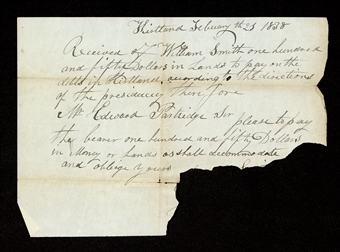 Kirtland Febuary th 21 1838
Received of William Smith one hundred
and fifty Dollars in Lands to pay on the
debts of Kirtland, acording to the directions
of the presidency therefore
Mr Edward Partridge Sir please to pay
the bearer one hundred and fifty Dollars
in Money or Lands as shall accommodate
and oblige yours